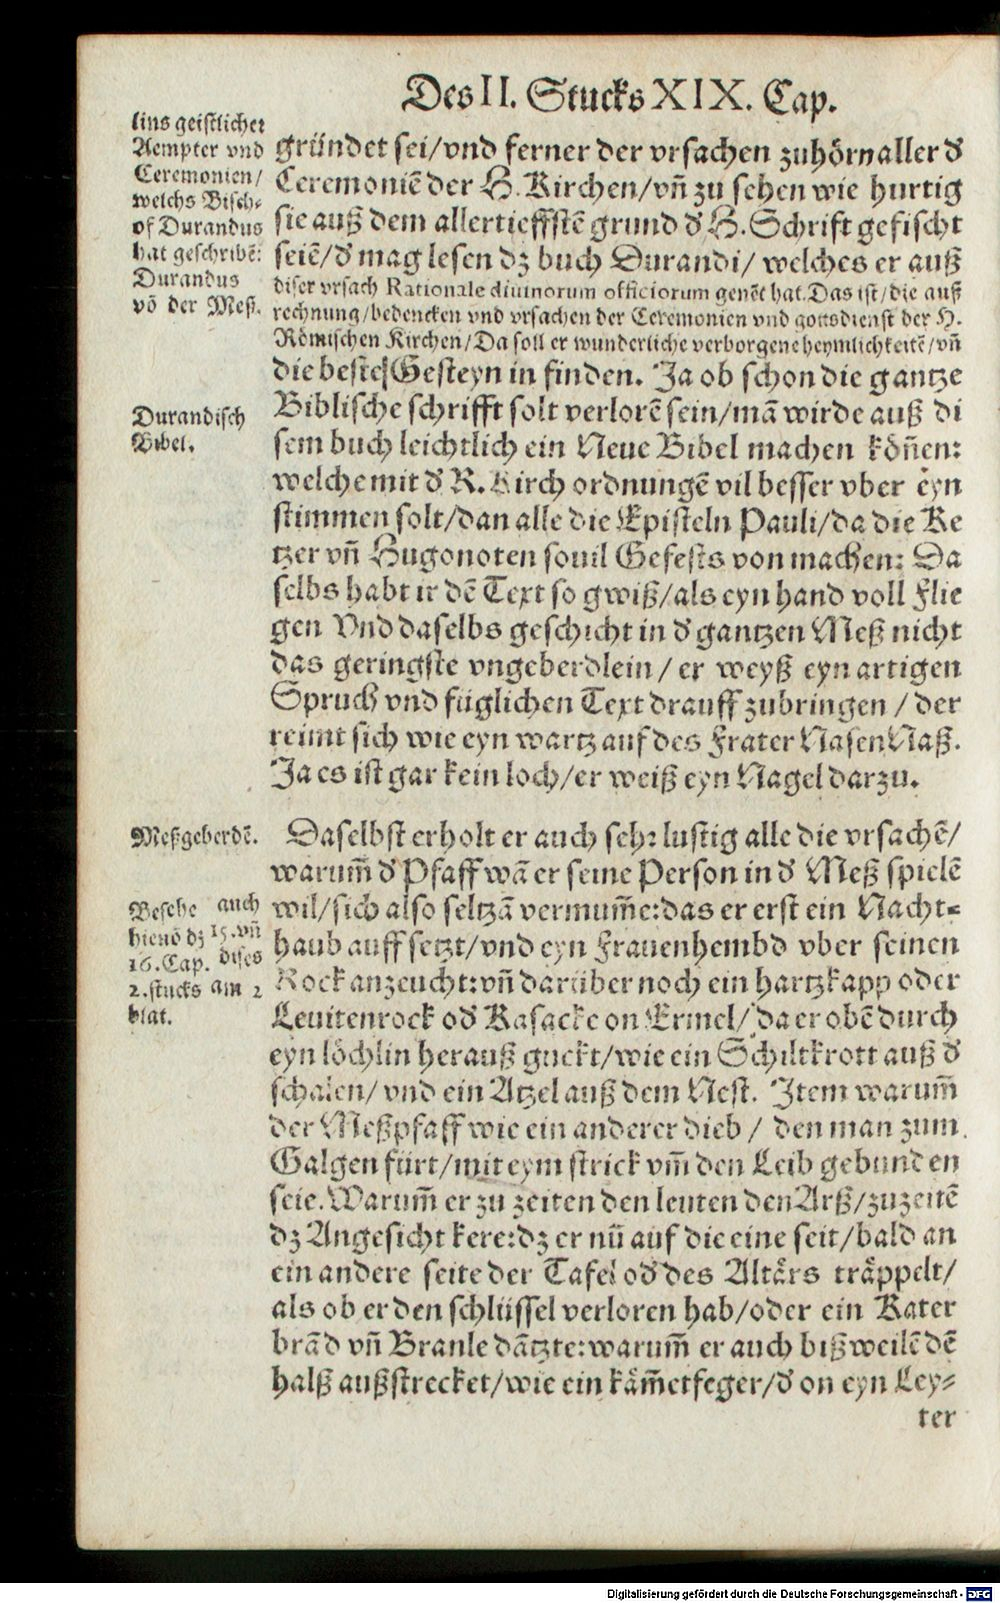 Des II. Stucks XIX. Cap.
lins geistlicher
Aempter vnd
Ceremonien/
welchs Bisch-
of Durandus
hat geschribē:
Durandus
võ der Meß.
gründet sei/vnd ferner der vrsachen zuhörn aller đ
Ceremoniē der H. Kirchen/vñ zu sehen wie hurtig
sie auß dem allertieffstē grund đ H. Schrift gefischt
seiē/đ mag lesen dz buch Durandi/ welches er auß
diser vrsach Rationale diuinorum officiorum genēt hat. Das ist/die auß
rechnung/bedencken vnd vrsachen der Ceremonien vnd gottsdienst der H.
Römischen Kirchen/Da soll er wunderliche verborgene heymlichkeitē/vñ
die beste Gesteyn in finden. Ja ob schon die gantze
Durandisch
Bibel.
Biblische schrifft solt verlorē sein/mā wirde auß di
sem buch leichtlich ein Neue Bibel machen köñen:
welche mit đ R. Kirch ordnungē vil besser vber eyn
stimmen solt/dan alle die Episteln Pauli/da die Ke
tzer vñ Hugonoten souil Gefests von machen: Da
selbs habt ir dē Text so gwiß/als eyn hand voll Flie
gen Vnd daselbs geschicht in đ gantzen Meß nicht
das geringste vngeberdlein/ er weyß eyn artigen
Spruch vnd füglichen Text drauff zubringen / der
reimt sich wie eyn wartz auf des Frater Nasen Naß.
Ja es ist gar kein loch/er weiß eyn Nagel darzu.
Meßgeberdē.
Daselbst erholt er auch sehr lustig alle die vrsachē/
warum̃ đ Pfaff wā er seine Person in đ Meß spielē
Besehe auch
hieuō dz 15. vñ
16. Cap. dises
2. stucks am 2
blat.
wil/sich also seltzā vermum̃e: das er erst ein Nacht-
haub auff setzt/vnd eyn Frauenhembd vber seinen
Rock anzeucht: vñ darüber noch ein hartzkapp oder
Leuitenrock ođ Kasacke on Ermel/ da er obē durch
eyn löchlin herauß guckt/wie ein Schiltkrott auß đ
schalen/ vnd ein Atzel auß dem Nest. Item warum̃
der Meßpfaff wie ein anderer dieb / den man zum
Galgen fürt/mit eym strick vm̃ den Leib gebunden
seie. Warum̃ er zu zeiten den leuten den Arß/zuzeitē
dz Angesicht kere: dz er nū auf die eine seit/bald an
ein andere seite der Tafel ođ des Altärs träppelt/
als ob er den schlüssel verloren hab/oder ein Kater
brād vñ Branle dātzte: warum̃ er auch bißweilē dē
halß außstrecket/wie ein käm̃etfeger/đ on eyn Ley-
ter
Digitalisierung gefördert durch die Deutsche Forschungsgemeinschaft - DFG